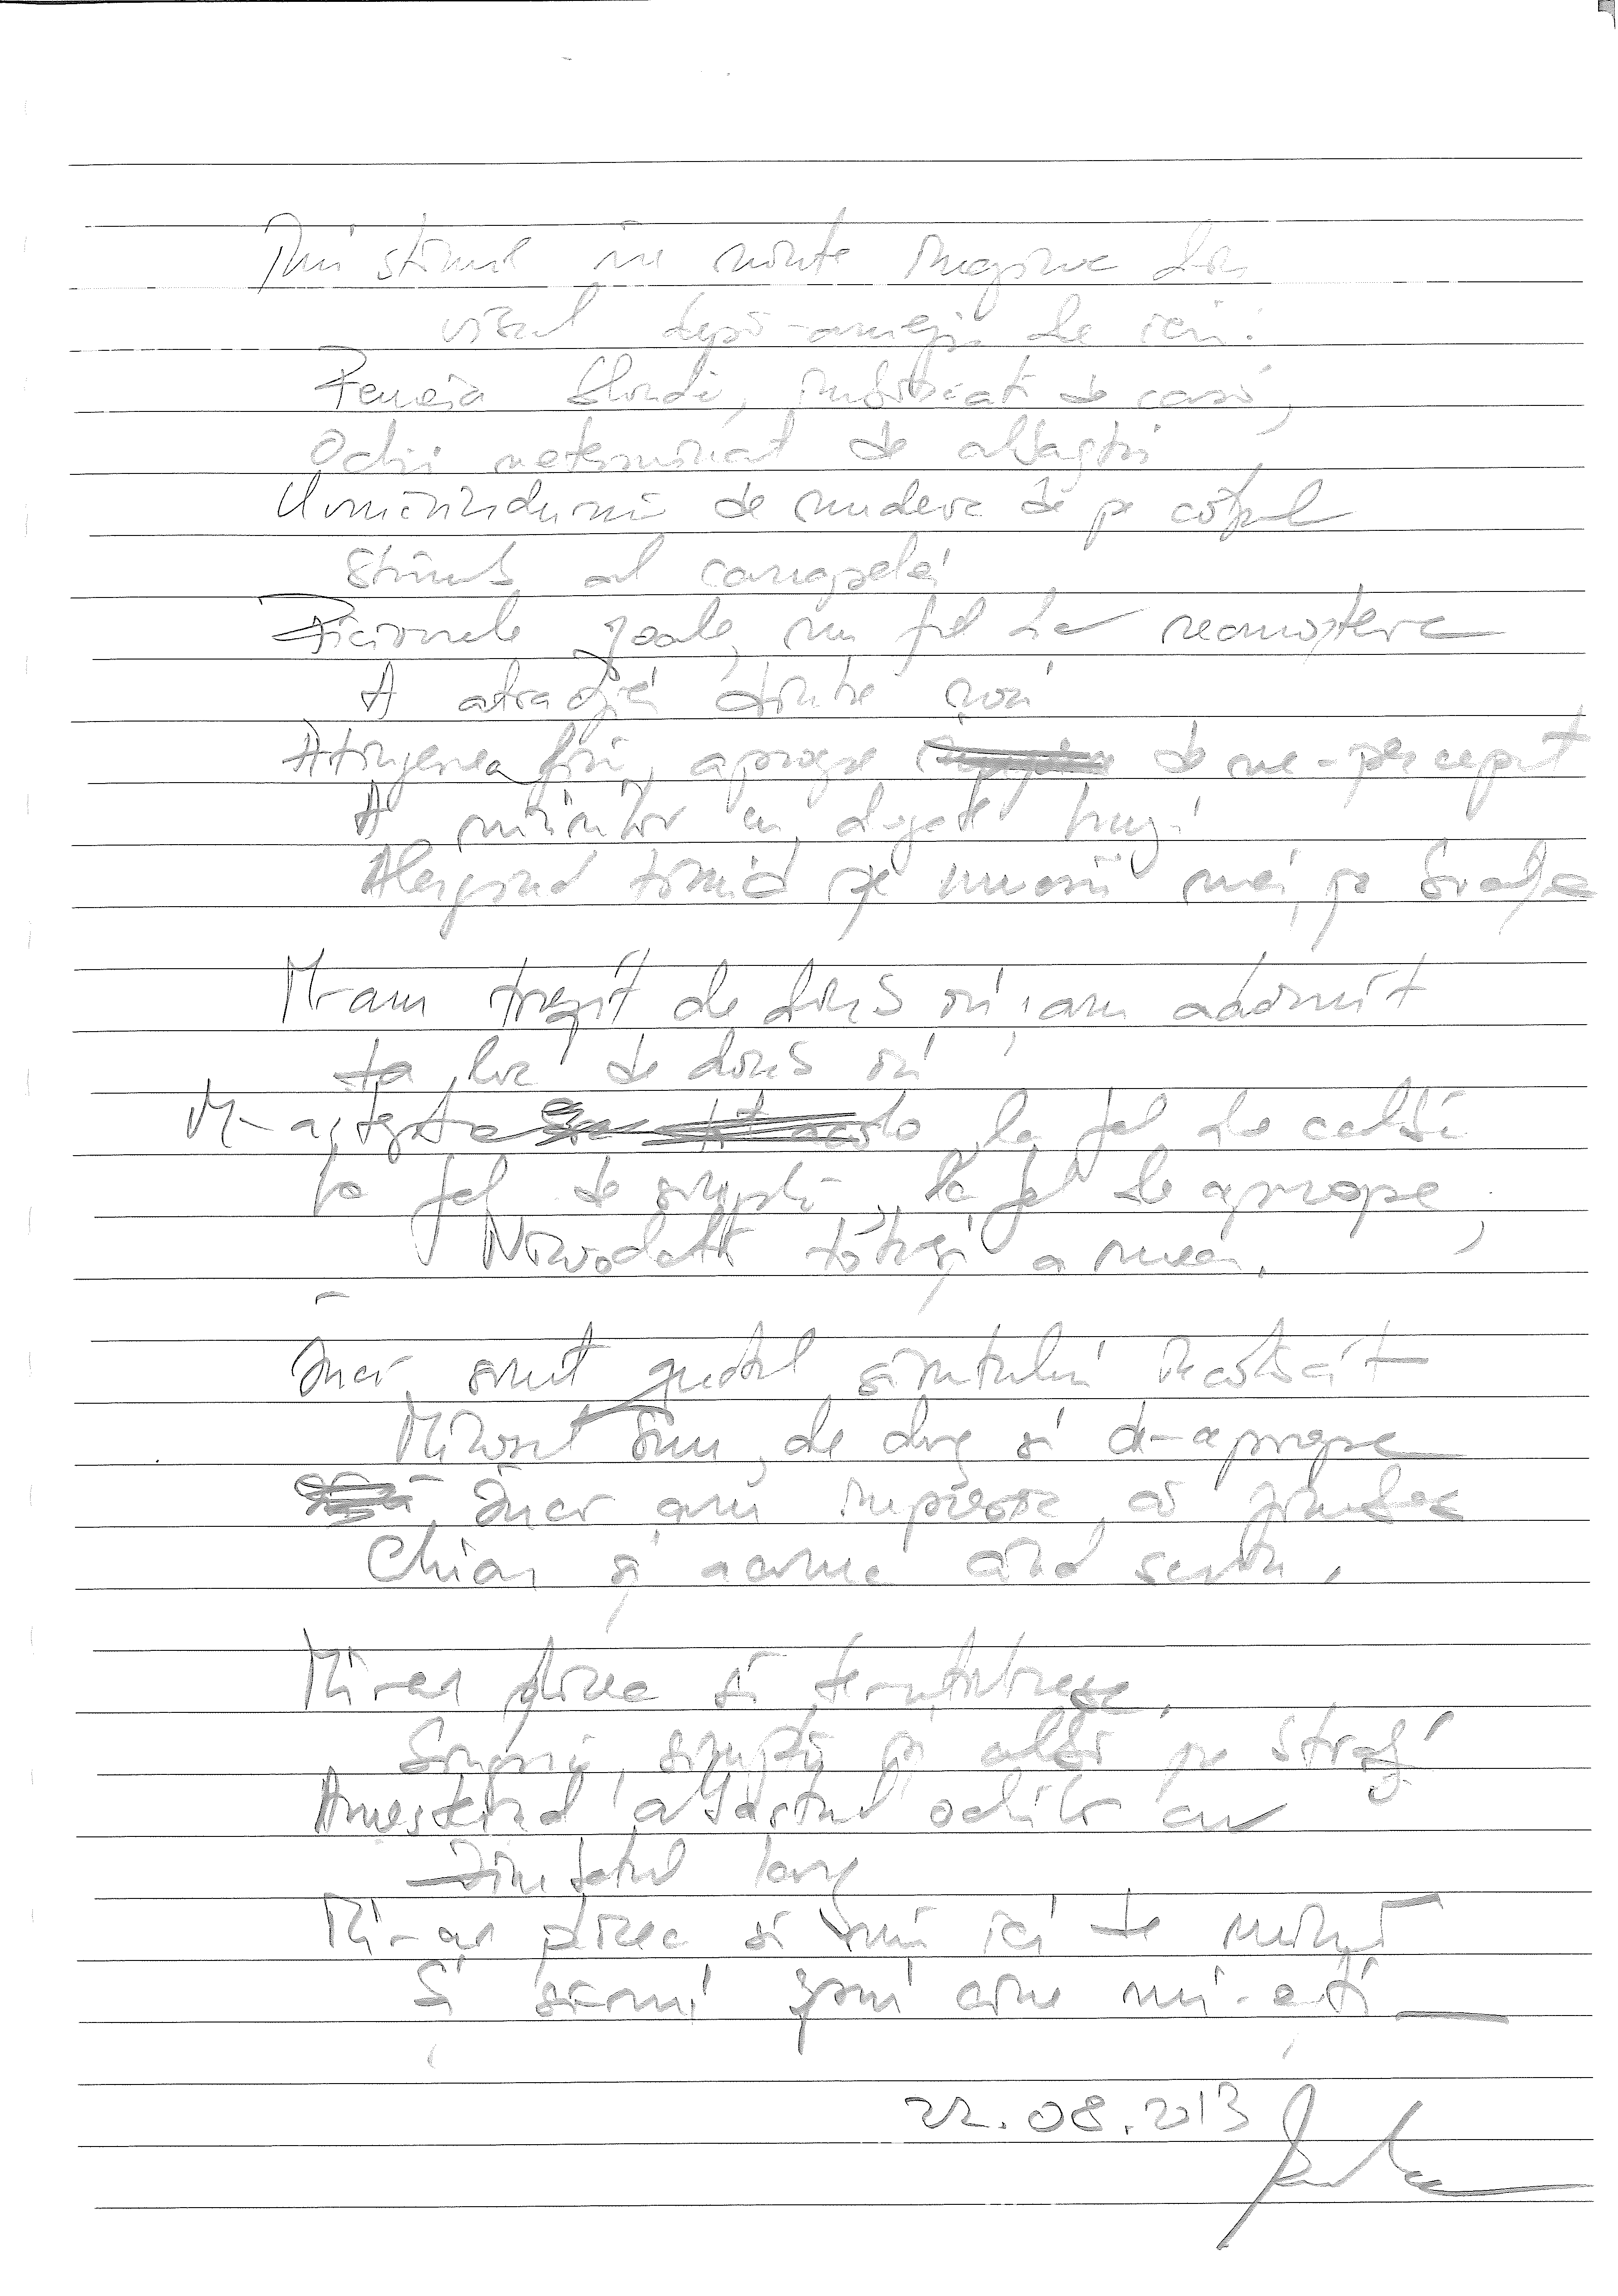 Îmi stăruie în minte imaginea din
visul după-amiezii de ieri:
Femeia blondă, îmbrăcată de casă,
Ochii de albaștri
de pe colțul
strâmb al canapelei
Picioarele goale, un fel de recunoaștere
A atracției dintre noi
Atingerea fină, aproape de ne-perceput
A mâinilor cu degete lungi
Alergând timid pe umerii mei, pe brațe
M-am trezit de două ori, am adormit
la loc de două ori
M-aștepta la fel de caldă
La fel de simplă, la fel de aproape,
Niciodată totuși a mea.
Încă simt gustul sărutului
Mirosul bun, de drag și de-aproape
Încă am impresia că zâmbesc
Chiar și acum când scriu.
Mi-ar plăcea să te-ntâlnesc,
simplă și caldă pe stradă
Amestecând albastrul ochilor cu
zâmbetul larg
Mi-ar plăcea să vii de mână
Și să-mi spui cine-mi ești
22.08.2013